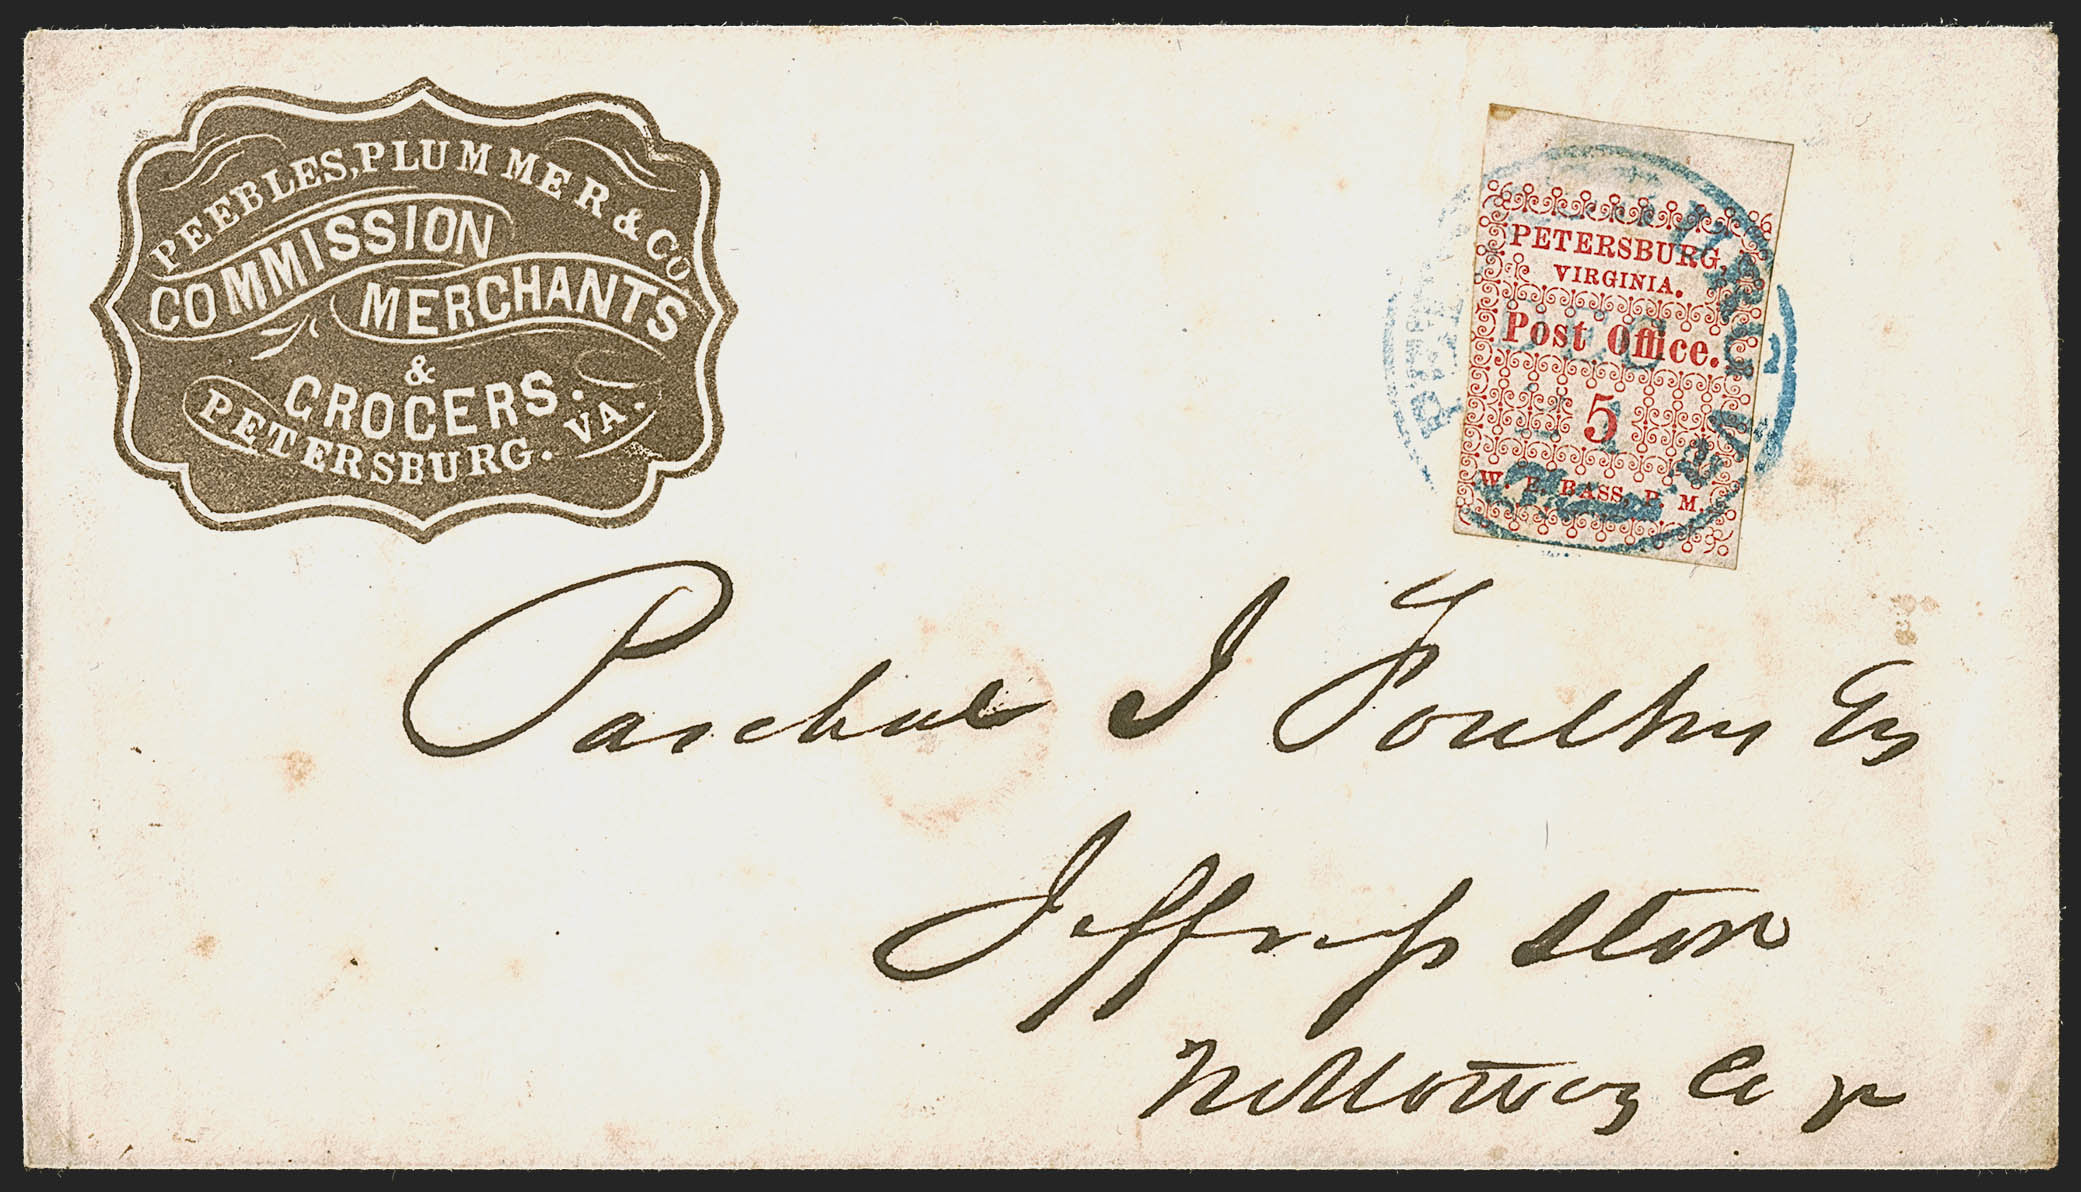 PEEBLES, PLUMMER & CO
COMMISSION
MERCHANTS
&
GROCERS.
PETERSBURG. VA.
PETERSBURG,
VIRGINIA.
Post Office.
5
W. E. BASS, P. M.
DEC
Paschal J Foulkes Esq
Jeffress Store
Nottoway Co Va